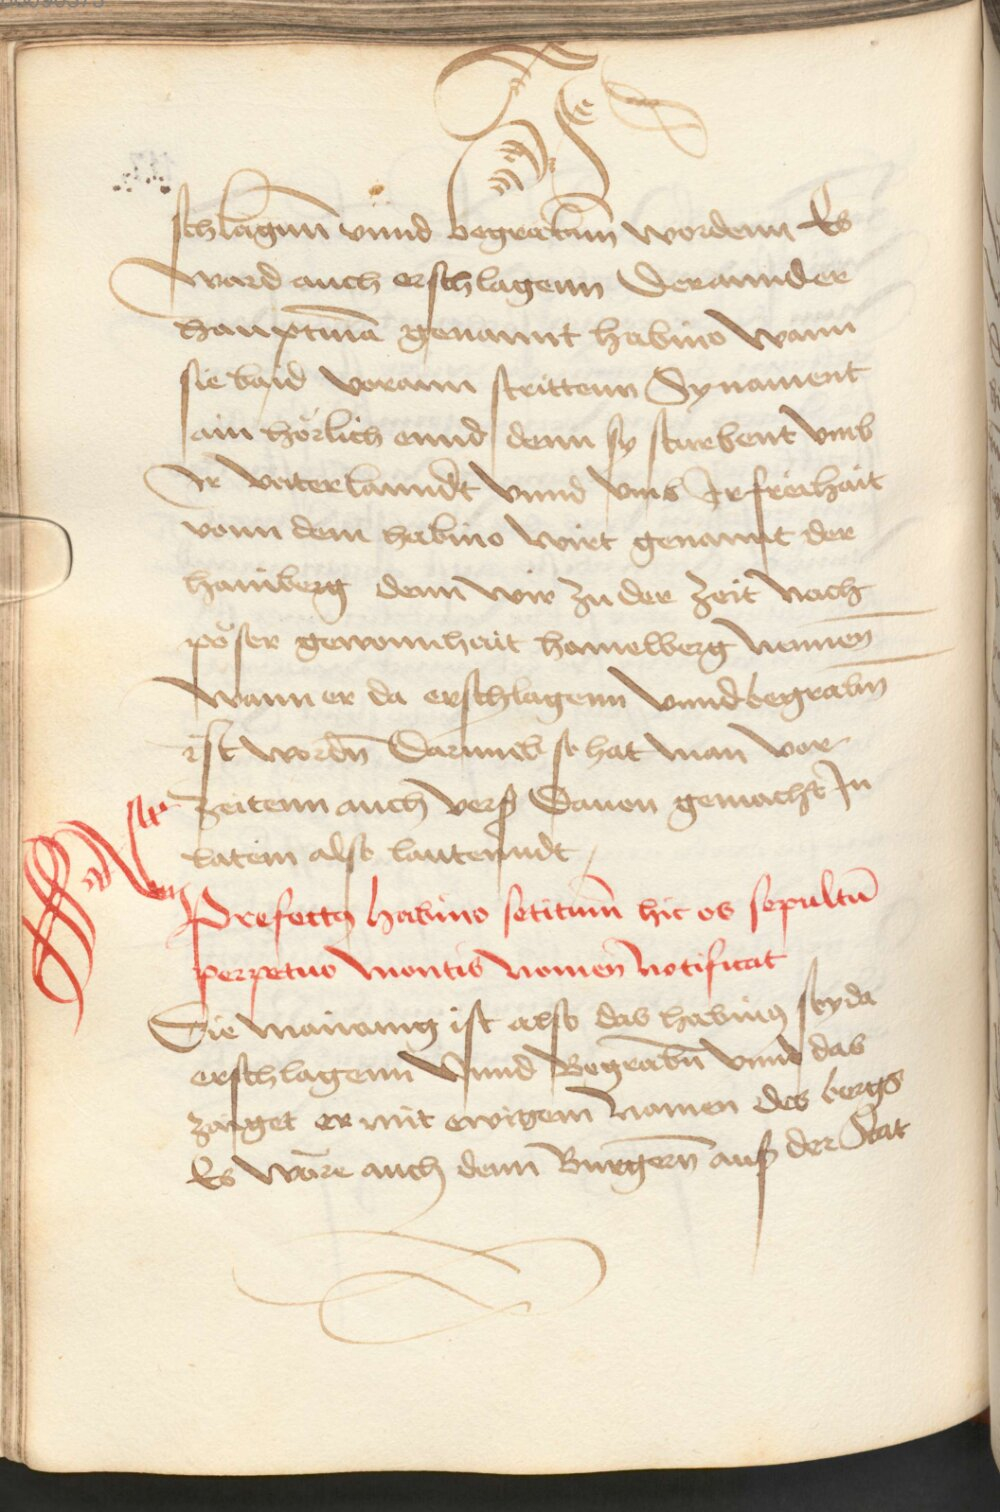 schlagnn vnnd begrabnn wordenn Es
ward auch erschlagenn Derannder
hauptma genannt habino wann
sie baid vorann strittenn Sy nament
ain hörlich ennd denn sy sturbent vmb
Ir vaterlanndt vnnd vmb Ir freihait
vonn dem habino wirt genannt der
hainberg denn wir zu der zeit nach
pöser gewonnhait hamelberg nennen
wann er da erschlagenn vnnd begrabn
ist wordn Darumb so hat man vor
zeitenn auch verß Dauon gemacht In
latein also lautenndt
Versus
Prefectus habino scitum hic os sepultu
perpetuo montis nomen notificat
Die mainung ist also das habinus seyda
erschlagenn vnnd Begrabn vnnd das
zaiget er mit ewigem namen des bergs
Es ware auch denn Burgern auß der Stat